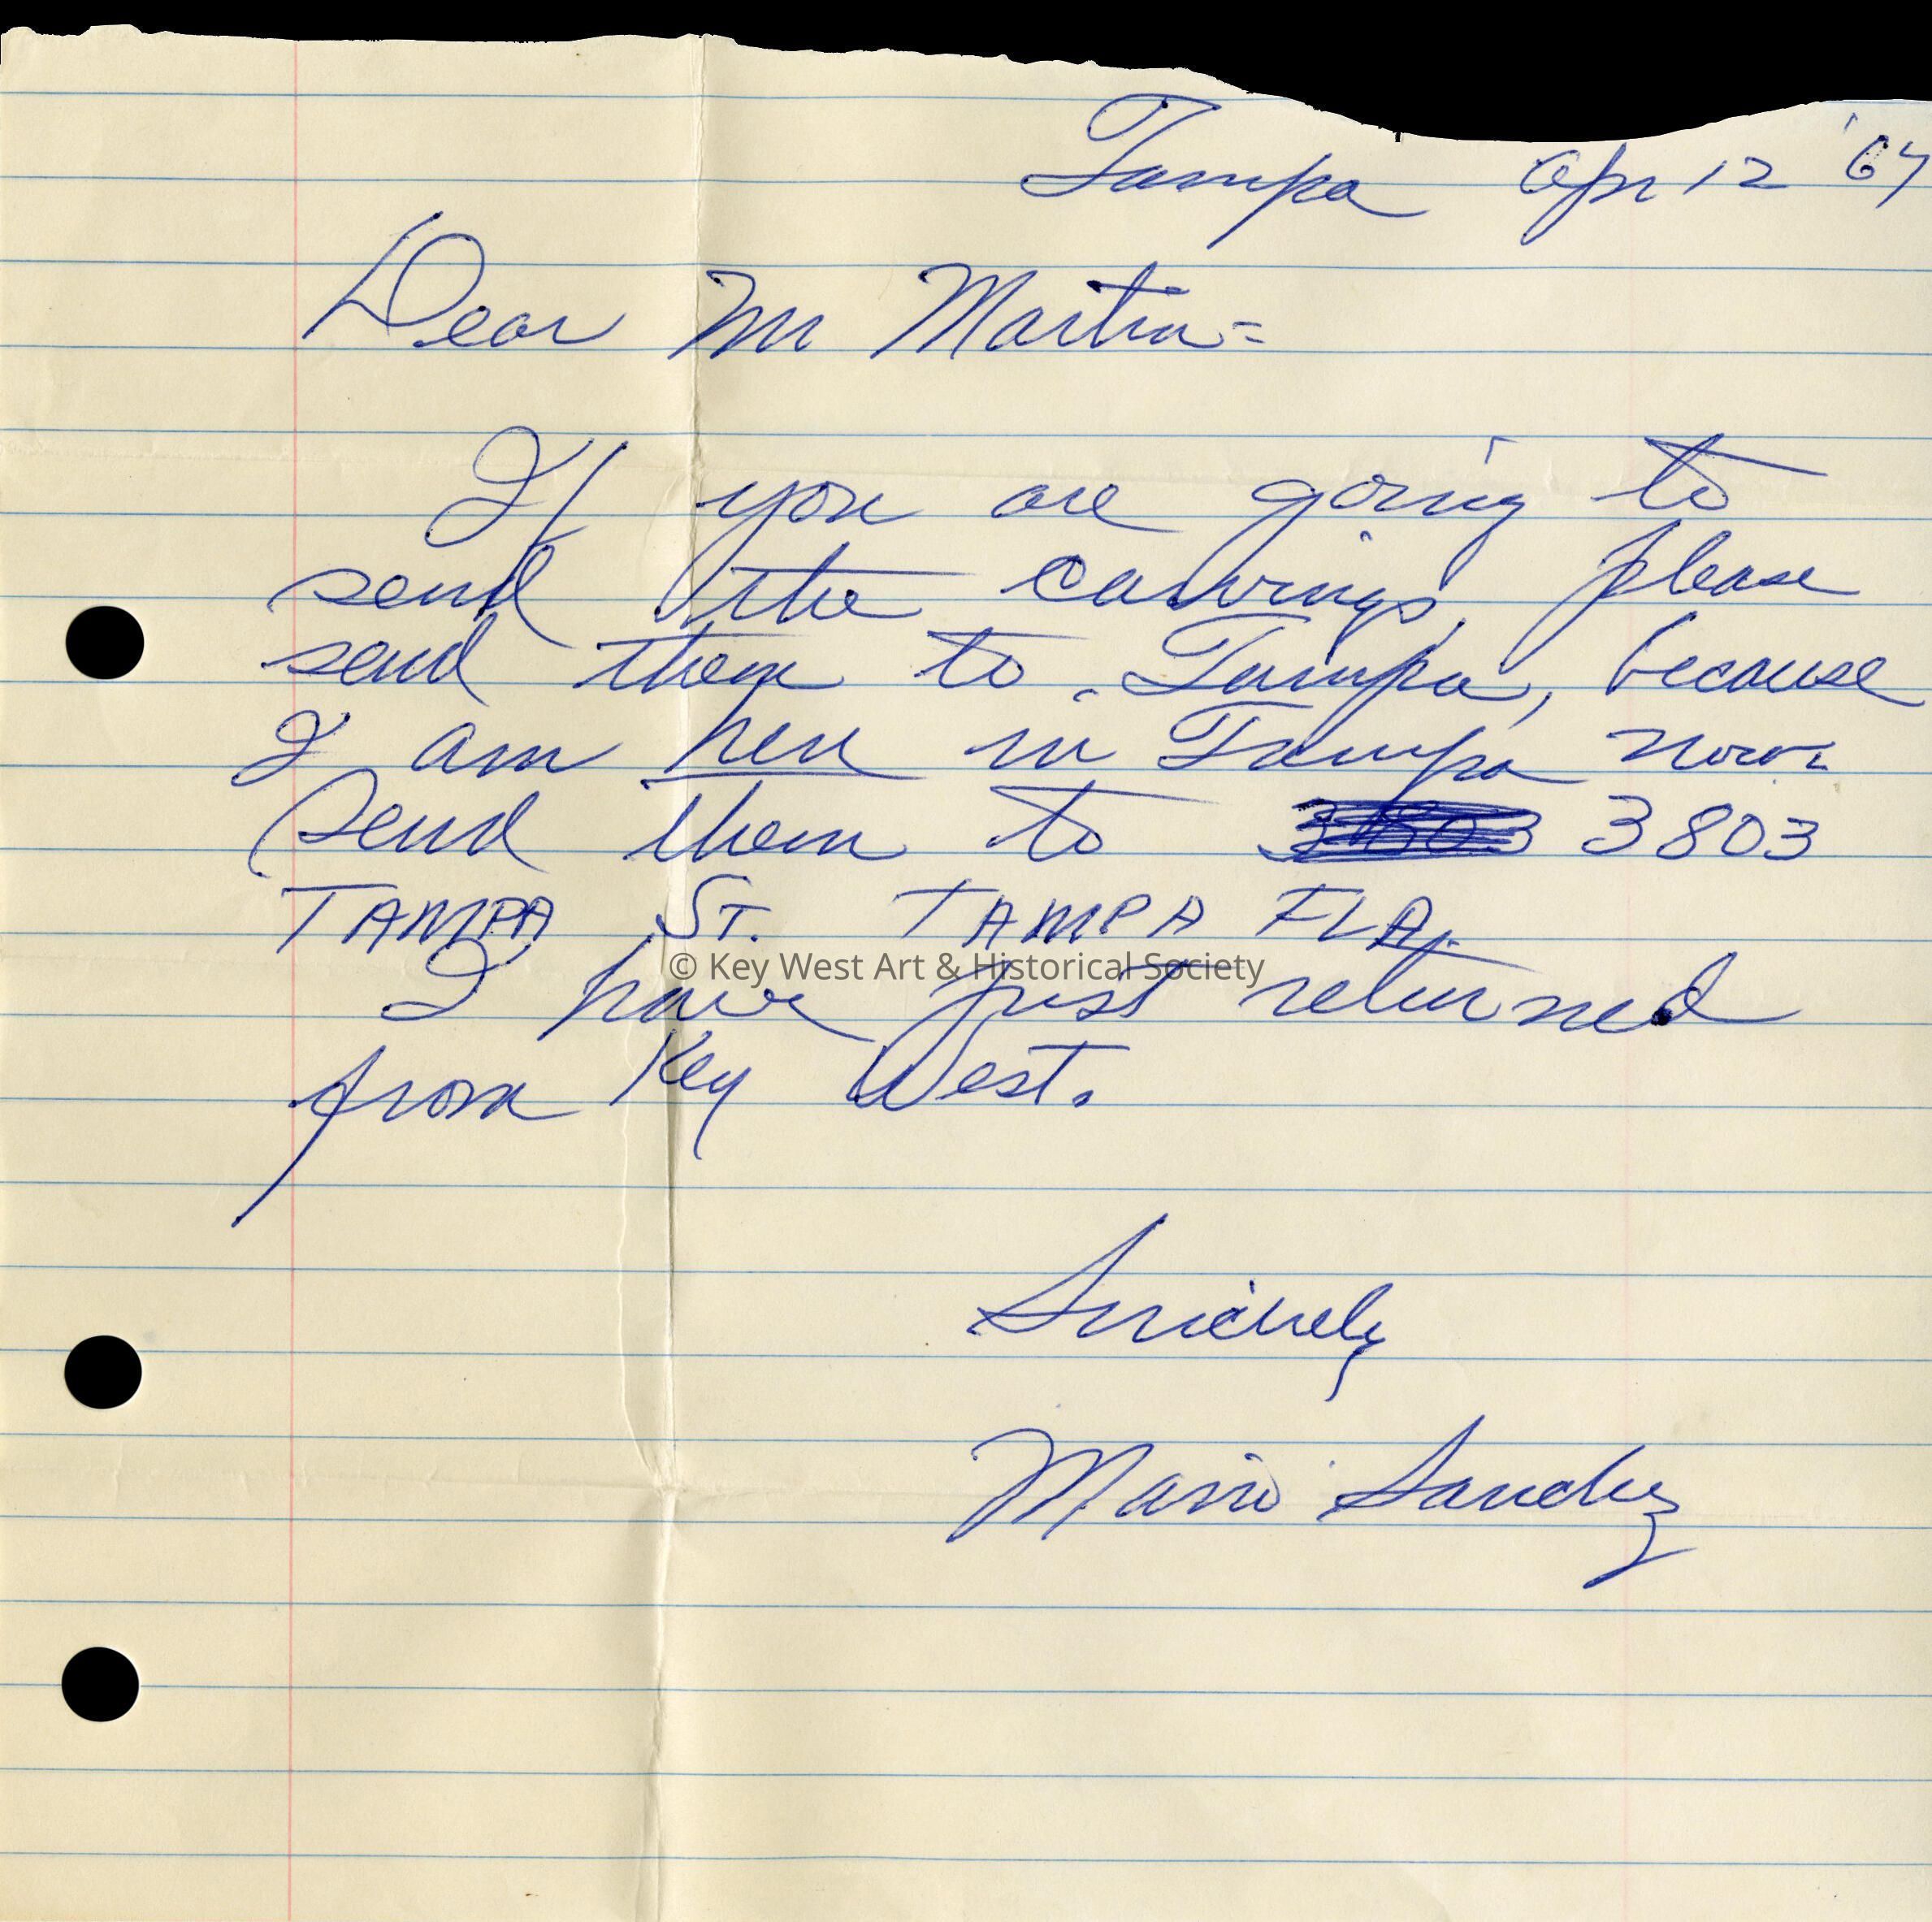 Tampa Apr 12 '67
Dear Mr Martin=
If you are going to
send the carvings, please
send them to Tampa, because
I am here in Tampa now.
Send them to 3803 3803
TAMPA ST. TAMPA FLA.
© Key West Art & Historical Society
I have just returned
from Key West.
Sincerely
Mario Sanchez